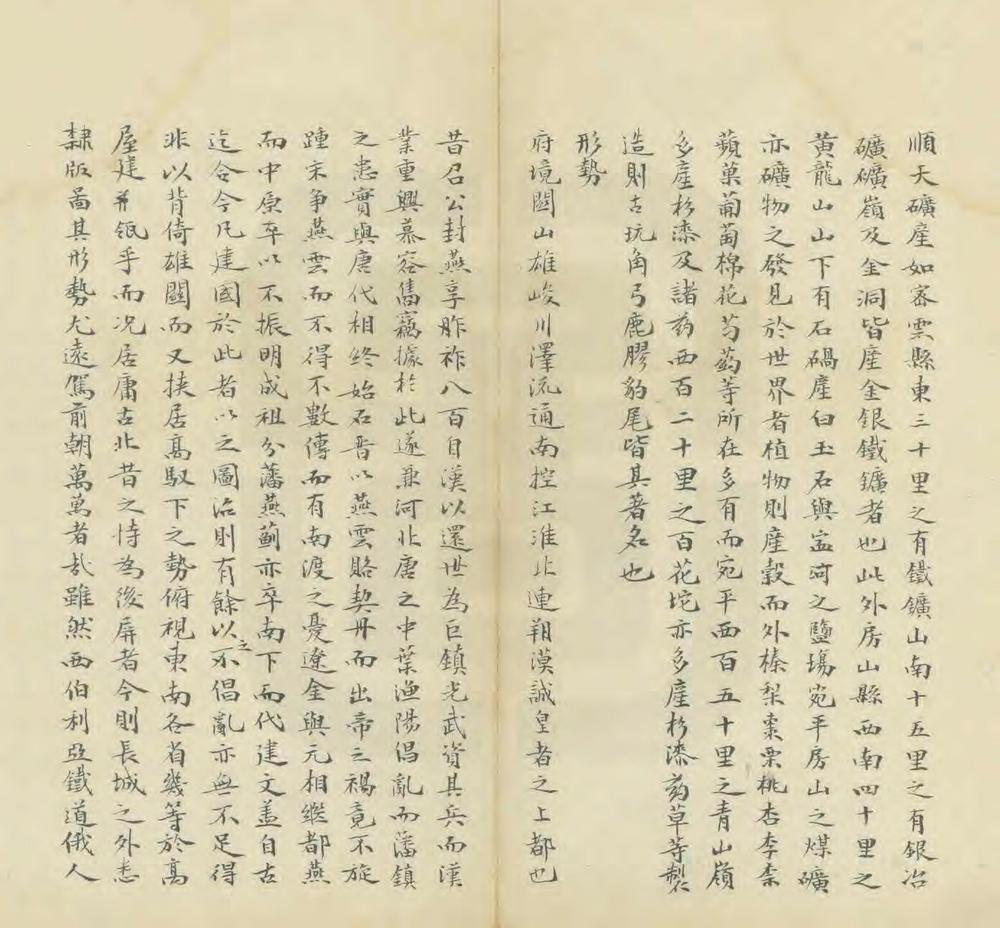 順天礦產如密雲縣東三十里之有鐵鑛山南十五里之有銀冶
礦礦嶺及金洞皆産金銀鐵鑛者也此外房山縣西南四十里之
黃龍山山下有石碢産白玉石與寶坻之鹽塲宛平房山之煤礦
亦礦物之發見於世界者植物則産穀而外榛梨棗栗桃杏李柰
蘋菓葡萄棉花芍葯等所在多有而宛平西百五十里之青山嶺
多産杉漆及諸葯西百二十里之百花坨亦多産杉漆葯草等製
造則古玩角弓鹿膠豹尾皆其著名也
形勢
府境關山雄峻川澤流通南控江淮北連朔漠誠皇者之上都也
昔召公封燕享胙祚八百自漢以還世為巨鎮光武資其兵而漢
業重興慕容儁竊據於此遂兼河北唐之中葉漁陽倡亂而藩鎮
之患實與唐代相終始石晋以燕雲賂契丹而出帝之禍竟不旋
踵宋争燕雲而不得不數傳而有南渡之憂遼金與元相繼都燕
而中原卒以不振明成祖分藩燕薊亦卒南下而代建文盖自古
迄今今凡建國於此者以之圖治則有餘以之不倡亂亦無不足得
非以背倚雄關而又挟居高馭下之勢俯視東南各省幾等於高
屋建瓴乎而况居庸古北昔之恃為後屏者今則長城之外悉
隸版啚其形勢尤遠駕前朝萬萬者㢤雖然西伯利亞鐵道俄人